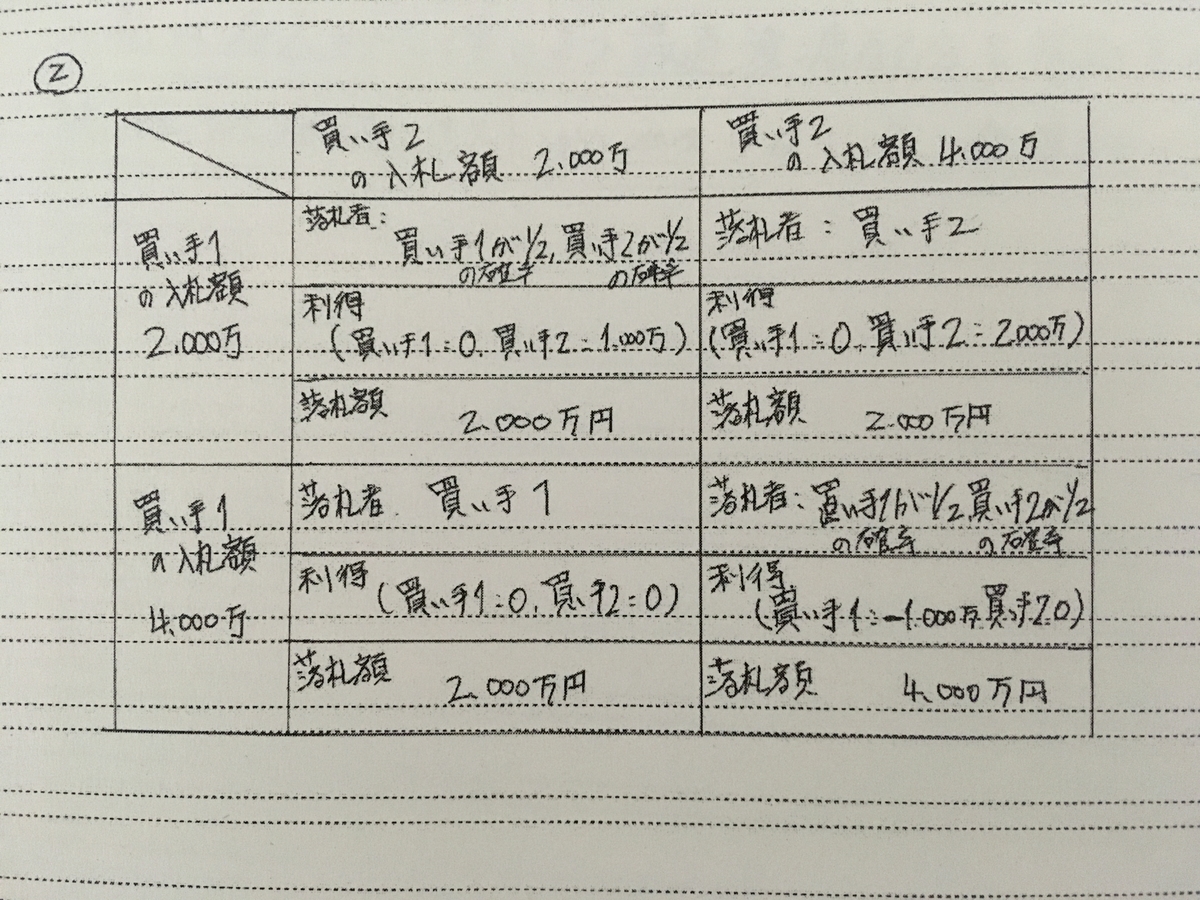 ②
買い手2
の入札額 2.000万
買い手2
の入札額 4.000万
買い手1
の入札額
2.000万
落札者:
買い手1が1/2, 買い手2が1/2
の確率 の確率
落札者: 買い手2
利得
(買い手1=0, 買い手2=1.000万)
利得
(買い手1=0, 買い手2=2000万)
落札額 2.000万円
落札額 2.000万円
買い手1
の入札額
4.000万
落札者. 買い手1
落札者: 買い手1が1/2, 買い手2が1/2
の確率 の確率
利得
(買い手1=0, 買い手2=0)
利得
(買い手1=-1.000万 買い手2 0)
落札額 2.000万円
落札額 4.000万円